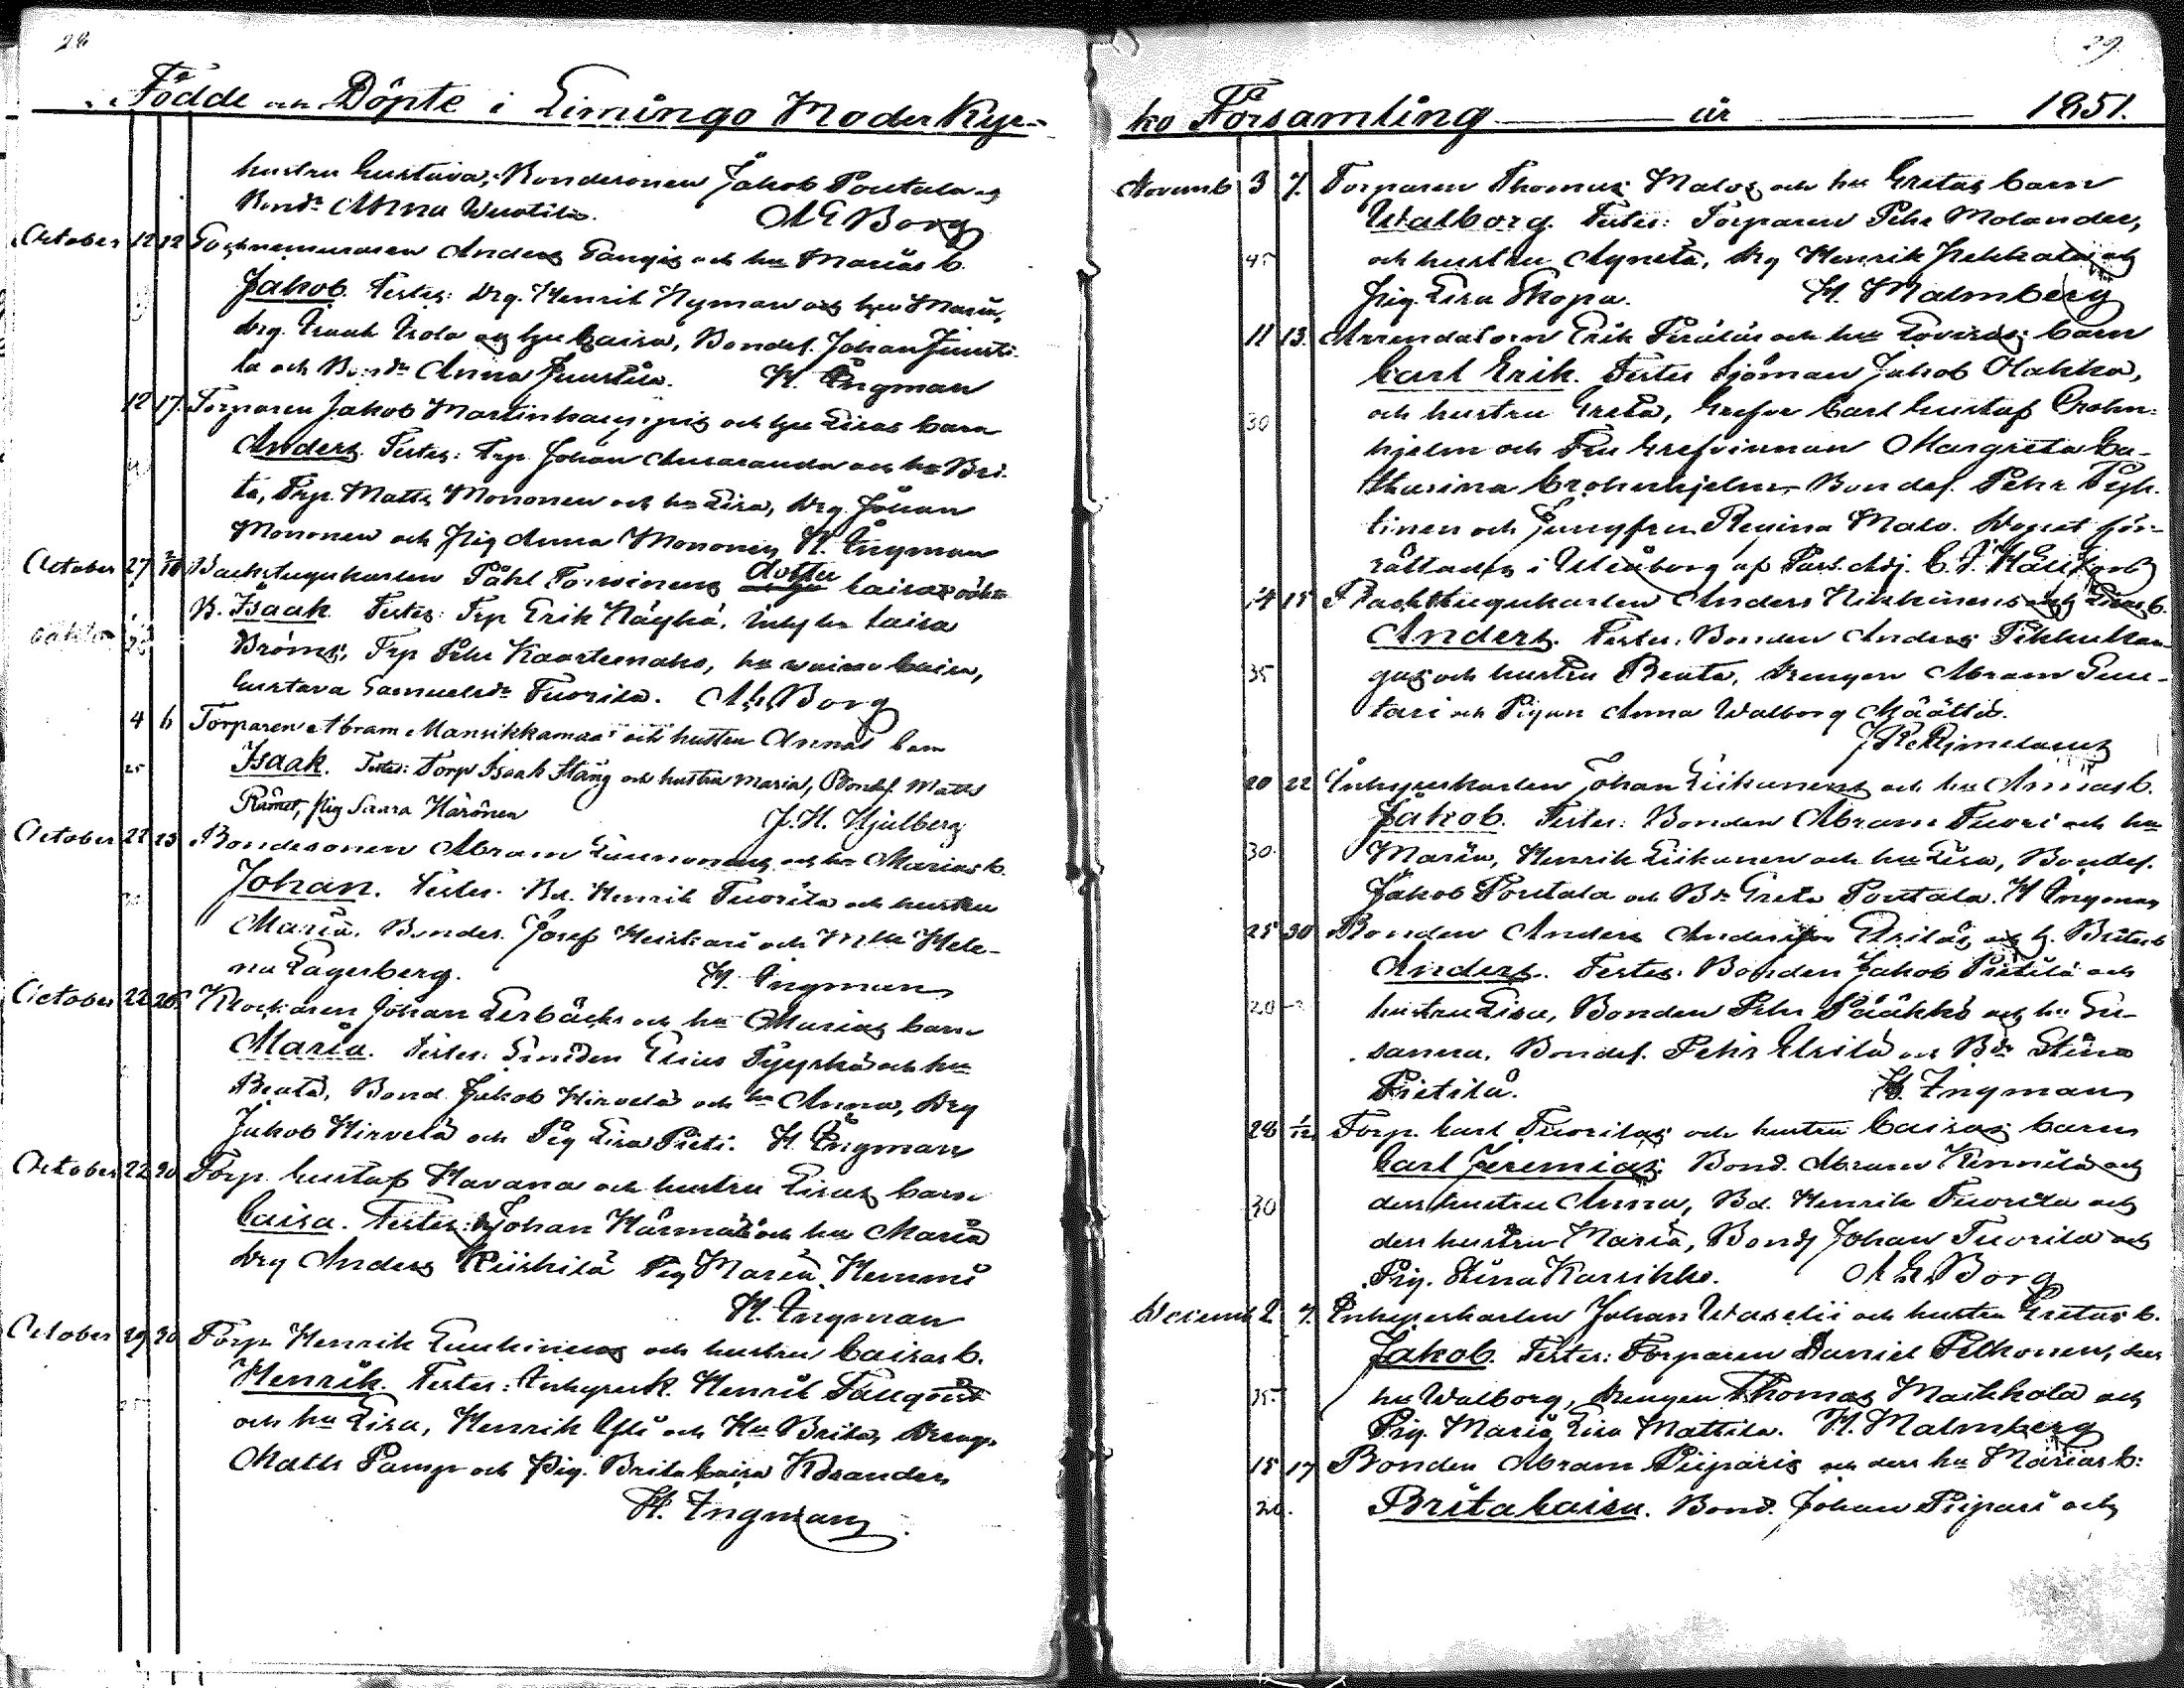 28
Födde och Döpte i Limingo Moder Kyr-
hustru Gustava, Bondesonen Jakob Pontala och
Bondr Anna Wuotila. A E Borg
October 12 12 Anders och hu Marias b.
Jakob. Testes: drg. Henrik Nyman och hju Maria,
drg. Isaak och hju Caisa, Bondes. Johan Juusti-
la och Bondr Anna Juustila. H. Ingman
12 17. Torparen Jakob och hju Lisas barn
Anders. Testes: Trp. Johan och hu Bri-
ta, Trp. Matts Mononen och hu Lisa, drg. Johan
Mononen och Pig Anna Mononen H. Ingman
October 27 Backstugukarlen Påhl dotter Caisas
B. Isaak. Testes: Trp Erik Näykä, Caisa
Bröms, Trp Pehr hu Caisa,
Gustava Samuelsdr Tuorila. A E Borg
4 6 Torparen Abram Mansikkamaas och hustru Annas barn
25 Isaak. Testes: Torp Isaak Stång och hustru Maria, Bondes. Matts
Rämet, Pig Saara Härönen J. H. Hjulberg
October 22 23 Bondesonen Abram och hu Marias b.
Johan. Testes. Bd. Henrik Tuorila och hustru
Maria. Bondes. Josef Heikari och Mlle Hele-
na Lagerberg. H. Ingman
October 22 26 Klockaren Johan Lerbäcks och hu Marias barn
Maria. Testes: Smeden Elias Tyyskä och hu
Beata, Bond. Jakob Hirvelä och hu Anna, Drg
Jakob Hirvelä och Pig Lisa Pieti. H. Ingman
October 22 30 Torp. Gustaf Havana och hustru Lisas barn
Caisa. Testes: Johan Härmälä och hu Maria
drg Anders Kiiskilä Pig Maria Hemmi
H. Ingman
October 29 30 Torp. Henrik Luukinens och hustru Caisas b.
Henrik. Testes: Inhyresk. Henrik Fallqvist
och hu Lisa, Henrik och Hu Brita, Dreng.
Matts Pamp och Pig. Brita Caisa Kosander
H. Ingman
29.
ko Församling år 1851.
Novemb 3 7. Torparen Thomas Malos och hu Gretas barn
Walborg. Testes: Torparen Pehr Molander,
och hustru Agneta, drg Henrik Jukkala och
Pig. Lisa Skopa. H. Malmberg
11 13. Arrendatorn Erik Perälas och hu Lovisas barn
Carl Erik. Testes Sjöman Jakob Olakka,
30 och hustru Greta, Grefve Carl Gustaf Crohn-
hjelm och Fru Grefvinnan Margreta Ca-
tharina Crohnhjelm, Bondes. Pehr Pyh-
tinen och Jungfru Regina Malo. Dopet för-
rättades i Uleåborg af Past. Adj. C. J.
14 15 Backstugukarlen Anders Hikkinens och Lisas b.
Anders. Testes: Bonden Anders Pikkukan-
35 gas och hustru Beata, drengen Abram Luu-
tari och Pigan Anna Walborg Määttä.
20 22 Inhyseskarlen Johan Liikanens och hu Annas b.
Jakob. Testes: Bonden Abram Tuori och hu
30. Maria, Henrik Liikanen och hu Lisa, Bondes.
Jakob Pontala och Bdr Greta Pontala. H Ingman
25 30 Bonden Anders Andersson Ursilas och h. Britas b
Anders. Testes: Bonden Jakob Pietilä och
hustru Lisa, Bonden Pehr Pääkkö och hu Su-
sanna. Bondes. Pehr Ursila och Bdr Stina
Pietilä. H. Ingman
28 1/12 Torp. Carl Tuorilas och hustru Caisas barn
Carl Jeremias. Bond. Abram Kinnilä och
30 dess hustru Anna, Bd. Henrik Tuorila och
dess hustru Maria, Bonds Johan Tuorila och
Pig. Stina Karsikko. A E. Borg
Decemb 2 7. Inhyseskarlen Johan och hustru Gretas b.
Jakob. Testes: Torparen Daniel Pelkonen, dess
35. hu Walborg, drengen Thomas Markkola och
Pig. Maria Lisa Mattila. H. Malmberg
15 17 Bonden Abram Piiparis och dess hu Marias b:
Brita Caisa. Bond. Johan Piipari och